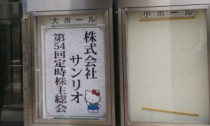 大ホール
株式会社
サンリオ
第54回定時株主総会
小ホール